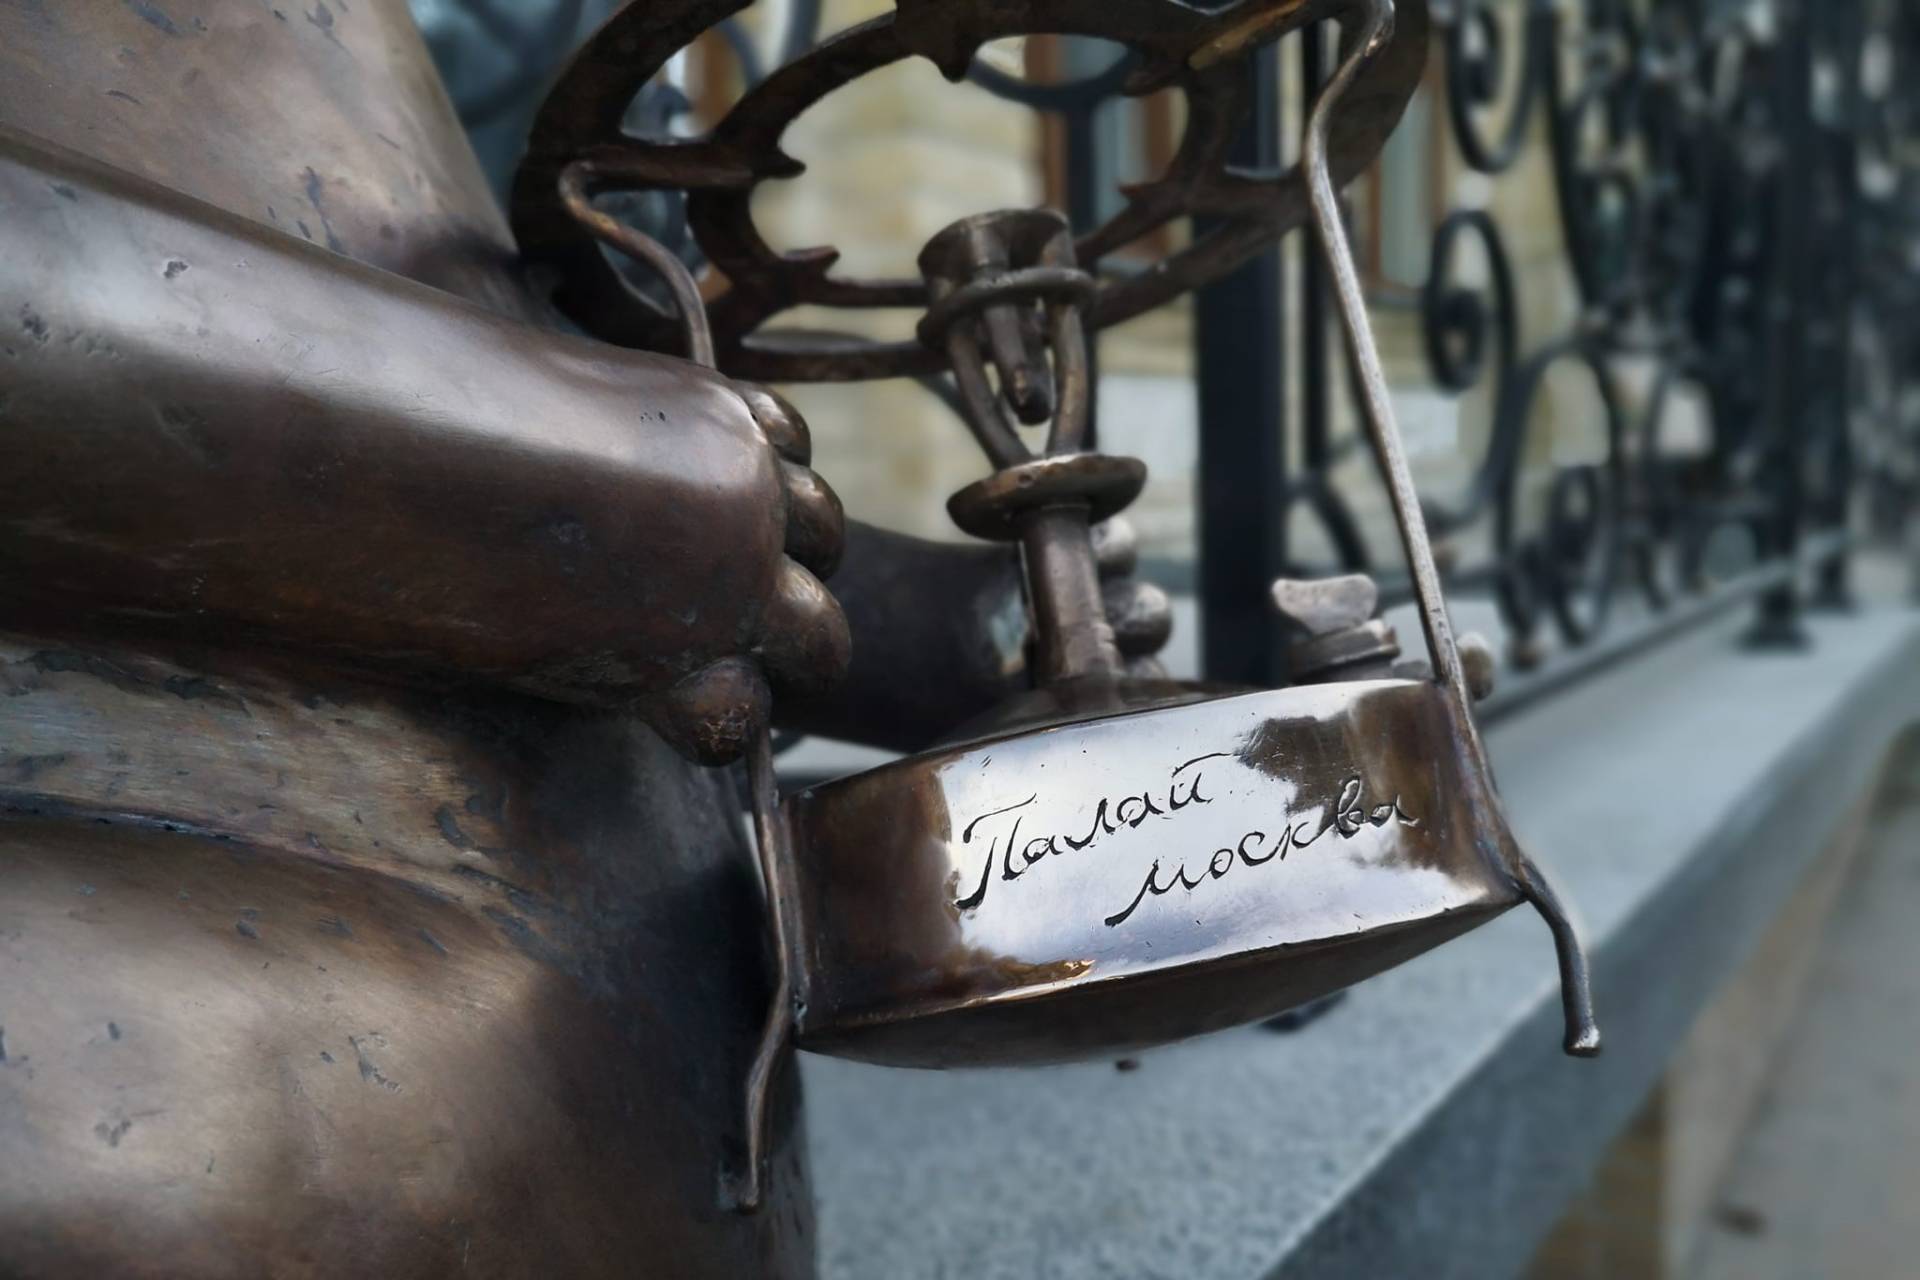 Палай
москва